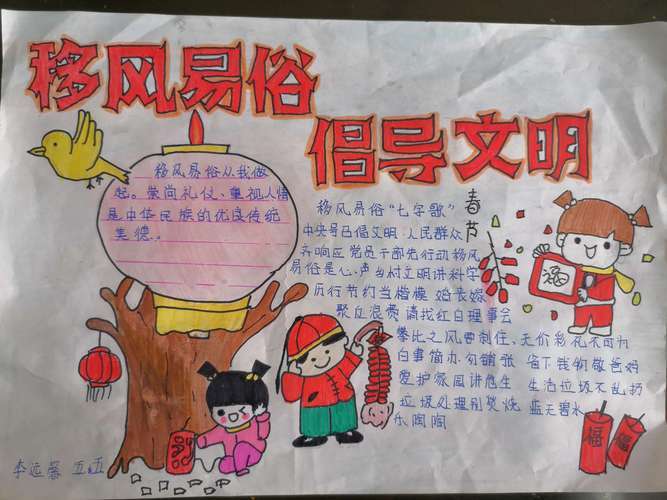 移风易俗
倡导文明
移风易俗从我做
起。崇尚礼仪、重视人情
是中华民族的优良传统
美德。
移风易俗“七字歌”
春节
中央号召倡文明 人民群众
齐响应 党员干部先行动 移风
易俗是心声 当村文明讲科学
厉行节约当楷模 婚丧嫁
聚勿浪费 请找红白理事会
攀比之风要刹住、天价彩礼不可取
白事简办勿铺张 省下钱钞敬爸妈
爱护家园讲卫生 生活垃圾不乱扔
垃圾处理别焚烧 蓝天碧水
乐陶陶
福
福
李远馨 五.五